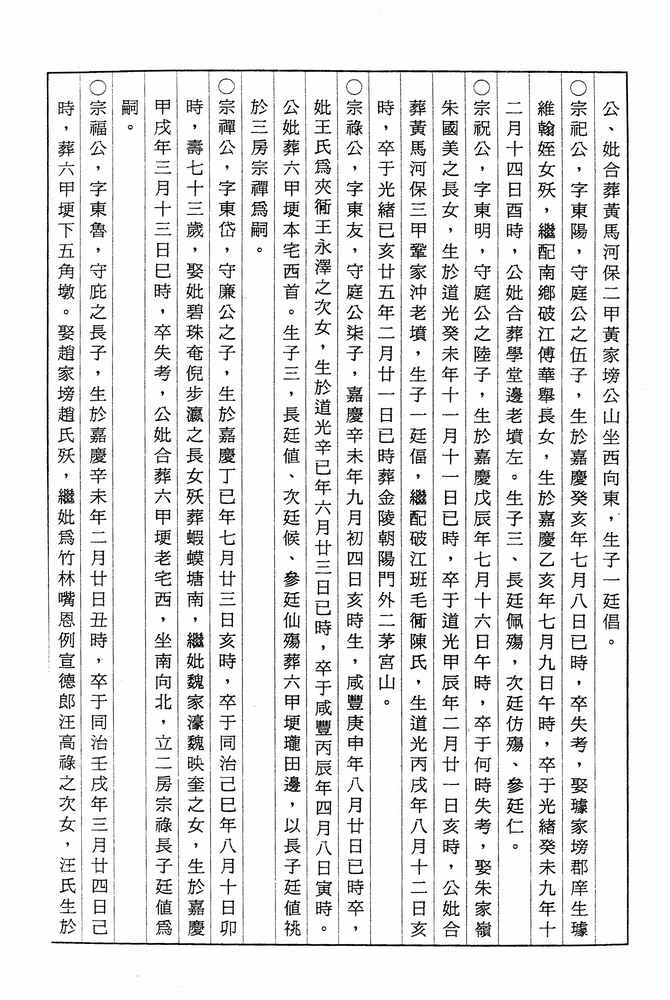 公、妣合葬黃馬河保二甲黃家塝公山坐西向東，生子一廷倡。
○宗祀公，字東陽，守庭公之伍子，生於嘉慶癸亥年七月八日巳時，卒失考，娶璩家塝郡庠生璩
維翰姪女殀，繼配南鄉破江傅華舉長女，生於嘉慶乙亥年七月九日午時，卒于光緒癸未九年十
二月十四日酉時，公妣合葬學堂邊老墳左。生子三、長廷佩殤，次廷仿殤、參廷仁。
○宗祝公，字東明，守庭公之陸子，生於嘉慶戊辰年七月十六日午時，卒于何時失考，娶朱家嶺
朱國美之長女，生於道光癸未年十一月十一日巳時，卒于道光甲辰年二月廿一日亥時，公妣合
葬黃馬河保三甲鞏家沖老墳，生子一廷偪，繼配破江班毛衕陳氏，生道光丙戌年八月十二日亥
時，卒于光緒己亥廿五年二月廿一日巳時葬金陵朝陽門外二茅宮山。
○宗祿公，字東友，守庭公柒子，嘉慶辛未年九月初四日亥時生，咸豐庚申年八月廿日巳時卒，
妣王氏為夾衕王永澤之次女，生於道光辛巳年六月廿三日巳時，卒于咸豐丙辰年四月八日寅時。
公妣葬六甲埂本宅西首。生子三，長廷値、次廷候、參廷仙殤葬六甲埂瓏田邊，以長子廷値祧
於三房宗禪為嗣。
○宗禪公，字東岱，守廉公之子，生於嘉慶丁巳年七月廿三日亥時，卒于同治己巳年八月十日卯
時，壽七十三歲，娶妣碧珠奄倪步瀛之長女殀葬蝦蟆塘南，繼妣魏家濠魏映奎之女，生於嘉慶
甲戌年三月十三日巳時，卒失考，公妣合葬六甲埂老宅西，坐南向北，立二房宗祿長子廷値為
嗣。
○宗福公，字東魯，守庇之長子，生於嘉慶辛未年二月廿日丑時，卒于同治壬戌年三月廿四日己
時，葬六甲埂下五角墩。娶趙家塝趙氏殀，繼妣為竹林嘴恩例宣德郎汪高祿之次女，汪氏生於